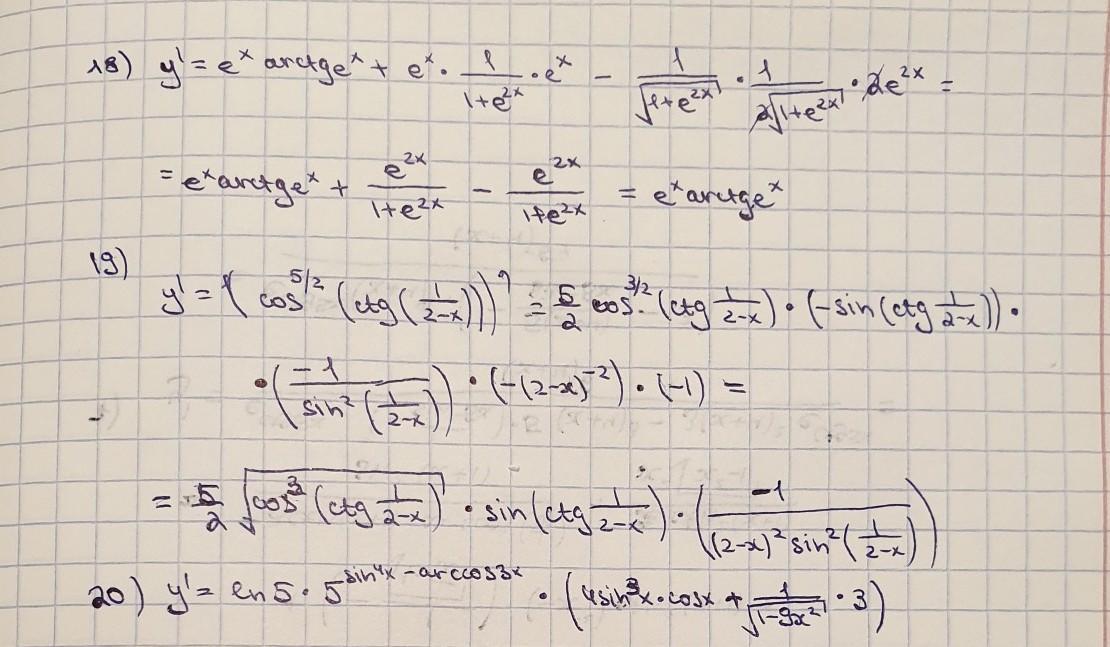 18) y' = e^x arctg e^x + e^x · 1/(1+e^(2x)) · e^x − 1/√(1+e^(2x)) · 1/(2√(1+e^(2x))) · 2e^(2x) =
= e^x arctg e^x + e^(2x)/(1+e^(2x)) − e^(2x)/(1+e^(2x)) = e^x arctg e^x
19)
y' = (cos^(5/2) (ctg(1/(2−x))))' = 5/2 cos^(3/2) (ctg 1/(2−x)) · (−sin(ctg 1/(2−x))) ·
· (−1/(sin² (1/(2−x)))) · (−(2−x)^(−2)) · (−1) =
= 5/2 √(cos³ (ctg 1/(2−x))) · sin(ctg 1/(2−x)) · (−1/((2−x)² sin² (1/(2−x))))
20) y' = ln 5 · 5^(sin⁴x − arccos3x) · (4sin³x · cosx + 1/√(1−9x²) · 3)